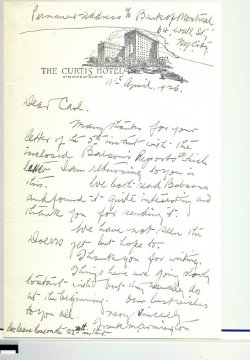 Permanent address % Bank of Montreal
64, Wall St.
NY City
THE CURTIS HOTEL
MINNEAPOLIS
11th April, 1936.
Dear Carl.
Many thanks for your
letter of the 5th instant with the
inclosed Babson's Report which
I am returning to you in
this. We both read Babsons
and found it quite interesting and
thank you for sending it.
We have not seen the
Doerrs yet but hope to.
Thank you for writing.
Things here are going slowly
to start with but they usually do
at the beginning. Our best wishes
to you all. Very Sincerely
Frank Armington
we leave here the 22nd